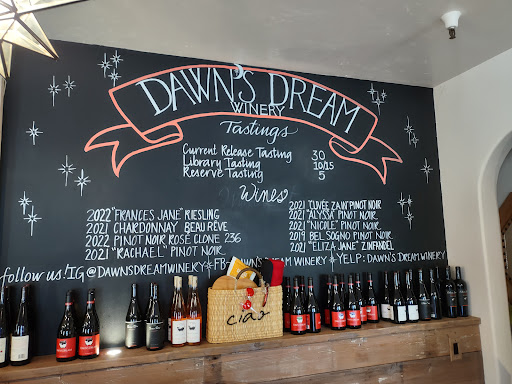 DAWN'S DREAM
WINERY
Tastings
Current Release Tasting 30
Library Tasting 10/15
Reserve Tasting 5
Wines
2022 "FRANCES JANE" RIESLING
2021 CHARDONNAY BEAU RÊVE
2022 PINOT NOIR ROSÉ CLONE 236
2021 "RACHAEL" PINOT NOIR
2021 "CUVÉE ZAIN" PINOT NOIR
2021 "ALYSSA" PINOT NOIR
2021 "NICOLE" PINOT NOIR
2019 BEL SOGNO PINOT NOIR
2021 "ELIZA JANE" ZINFANDEL
follow us! IG @DAWNSDREAMWINERY FB- DAWN'S DREAM WINERY YELP: DAWN'S DREAM WINERY
ciao